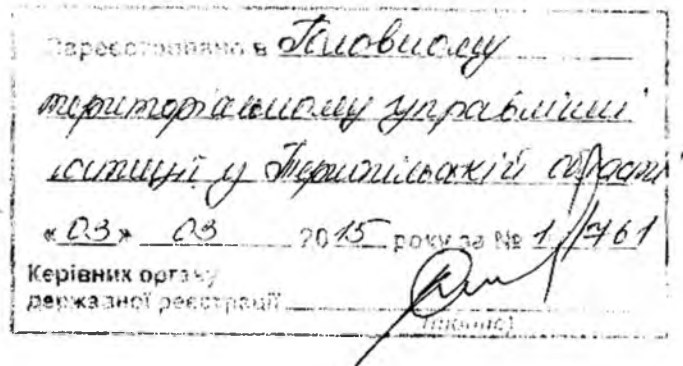 Зареєстровано в Головному
територіальному управлінні
юстиції у Тернопільській області
« 03 » 03 2015 року за № 1/761
Керівник органу
державної реєстрації
(підпис)